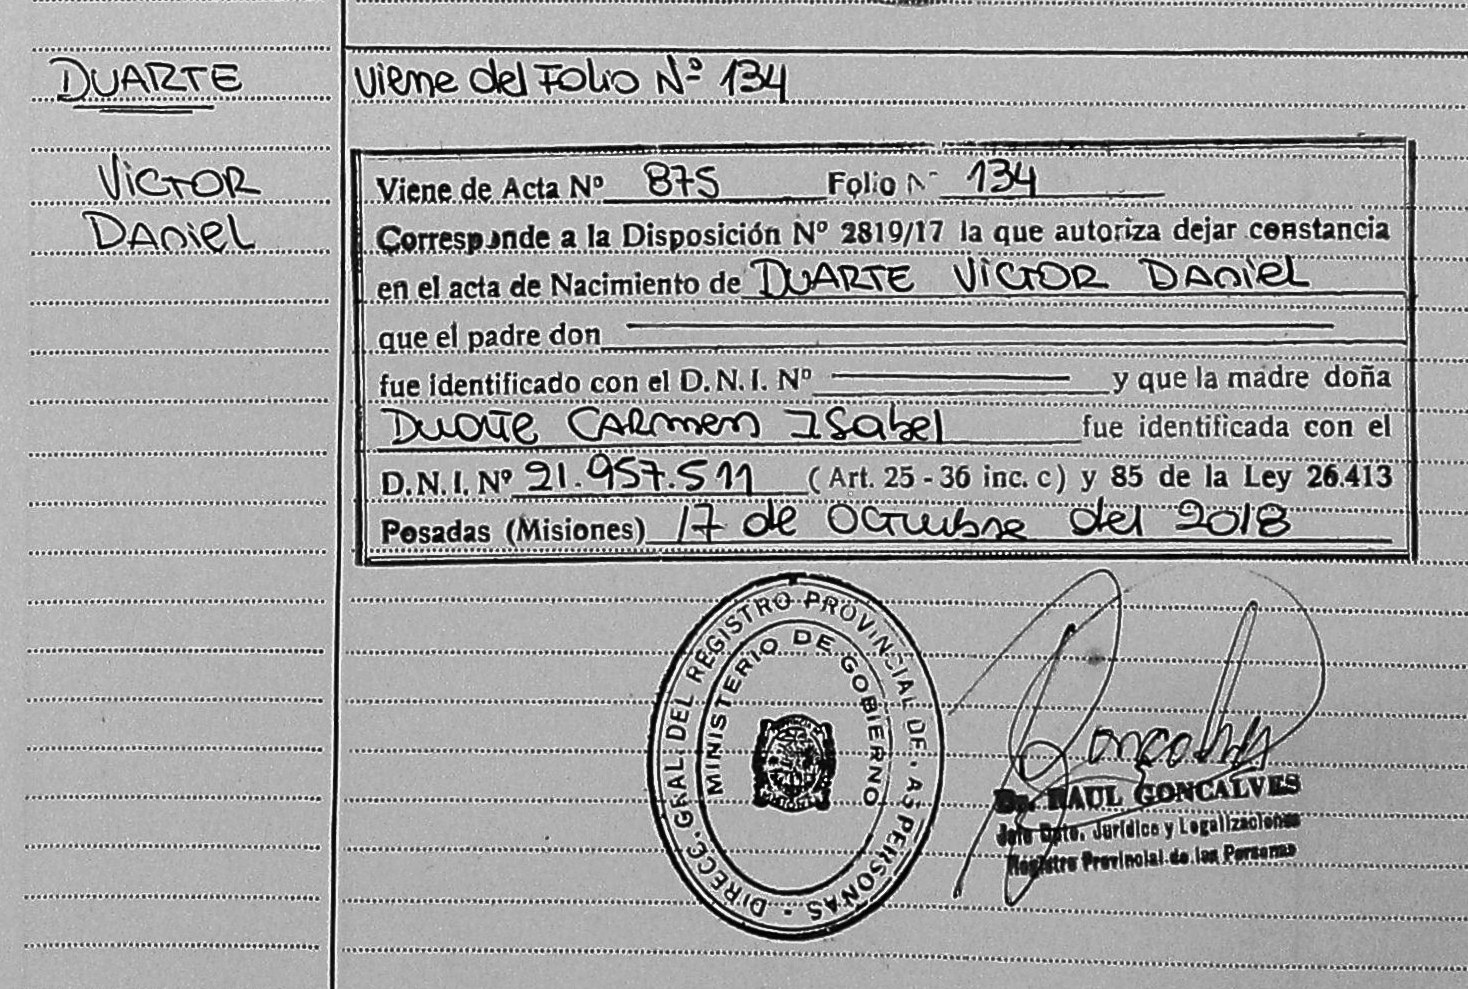 DUARTE
Viene del Folio Nº 134
VICTOR
DANIEL
Viene de Acta Nº 875 Folio Nº 134
Corresponde a la Disposición Nº 2819/17 la que autoriza dejar constancia
en el acta de Nacimiento de DUARTE VICTOR DANIEL
que el padre don
fue identificado con el D.N.I. Nº y que la madre doña
Duarte CARMEN ISabel fue identificada con el
D.N.I. Nº 21.957.511 (Art. 25 - 36 inc. c) y 85 de la Ley 26.413
Posadas (Misiones) 17 de Octubre del 2018
DIRECC. GRAL. DEL REGISTRO PROVINCIAL DE LAS PERSONAS
MINISTERIO DE GOBIERNO
Goncalves
Dr. RAUL GONCALVES
Jefe Dpto. Jurídico y Legalizaciones
Registro Provincial de las Personas